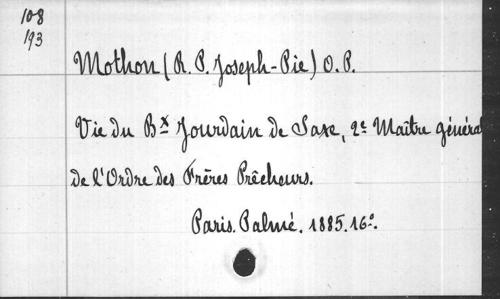 108
193
Mothon (R. P. Joseph-Pie) O. P.
Vie du Bx Jourdain de Saxe, 2e Maître général
de l'Ordre des Frères Prêcheurs.
Paris. Palmé. 1885. 16o.